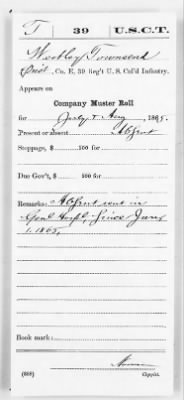 T 39 U.S.C.T.
Townsend
Co. E, 39 Reg't U. S. Col'd Infantry.
Appears on
Company Muster Roll
for July & Aug, 1865.
Present or absent Absent
Stoppage, $ 100 for
Due Gov't, $ 100 for
Remarks: Absent in
Genl Hospl, Since June
1, 1865.
Book mark:
(858) Copyist.